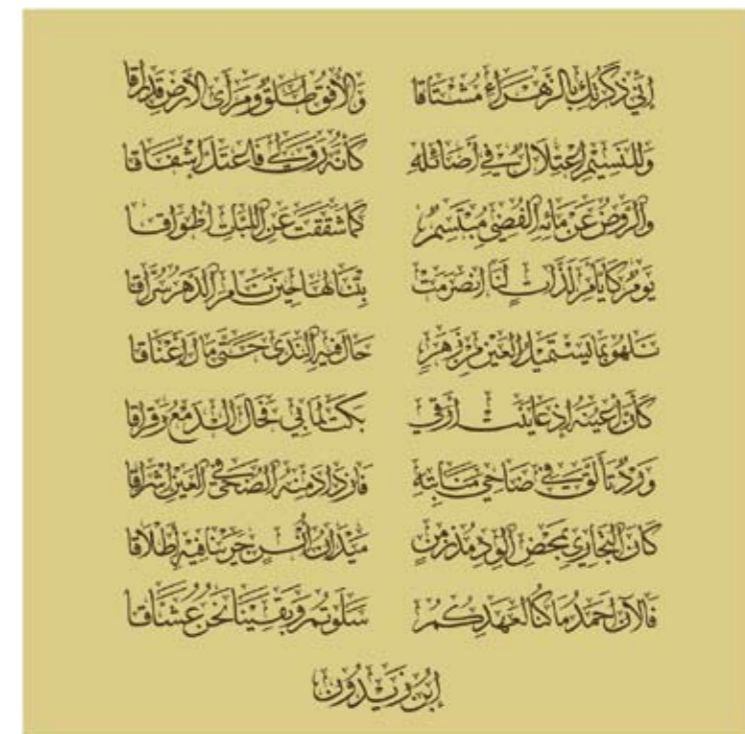 إني ذكرتك بالزهراء مشتاقا والأفق طلق ومرأى الأرض قد راقا
وللنسيم اعتلال في أصائله كأنه رق لي فاعتل إشفاقا
والروض عن مائه الفضي مبتسم كما شققت عن اللبات أطواقا
يوم كأيام لذات لنا انصرمت بتنا لها حين نام الدهر سراقا
نلهو بما يستميل العين من زهر جال فيه الندى حتى مال أعناقا
كأن أعينه إذ عاينت أرقي بكت لما بي فجال الدمع رقراقا
ورد تألق في ضاحي منابته فازداد منه الضحى في العين إشراقا
كان التجاري بمحض الود مذ زمن ميدان أنس جرينا فيه إطلاقا
فالآن أحمد ما كنا لعهدكم سلوتم وبقينا نحن عشاقا
ابن زيدون